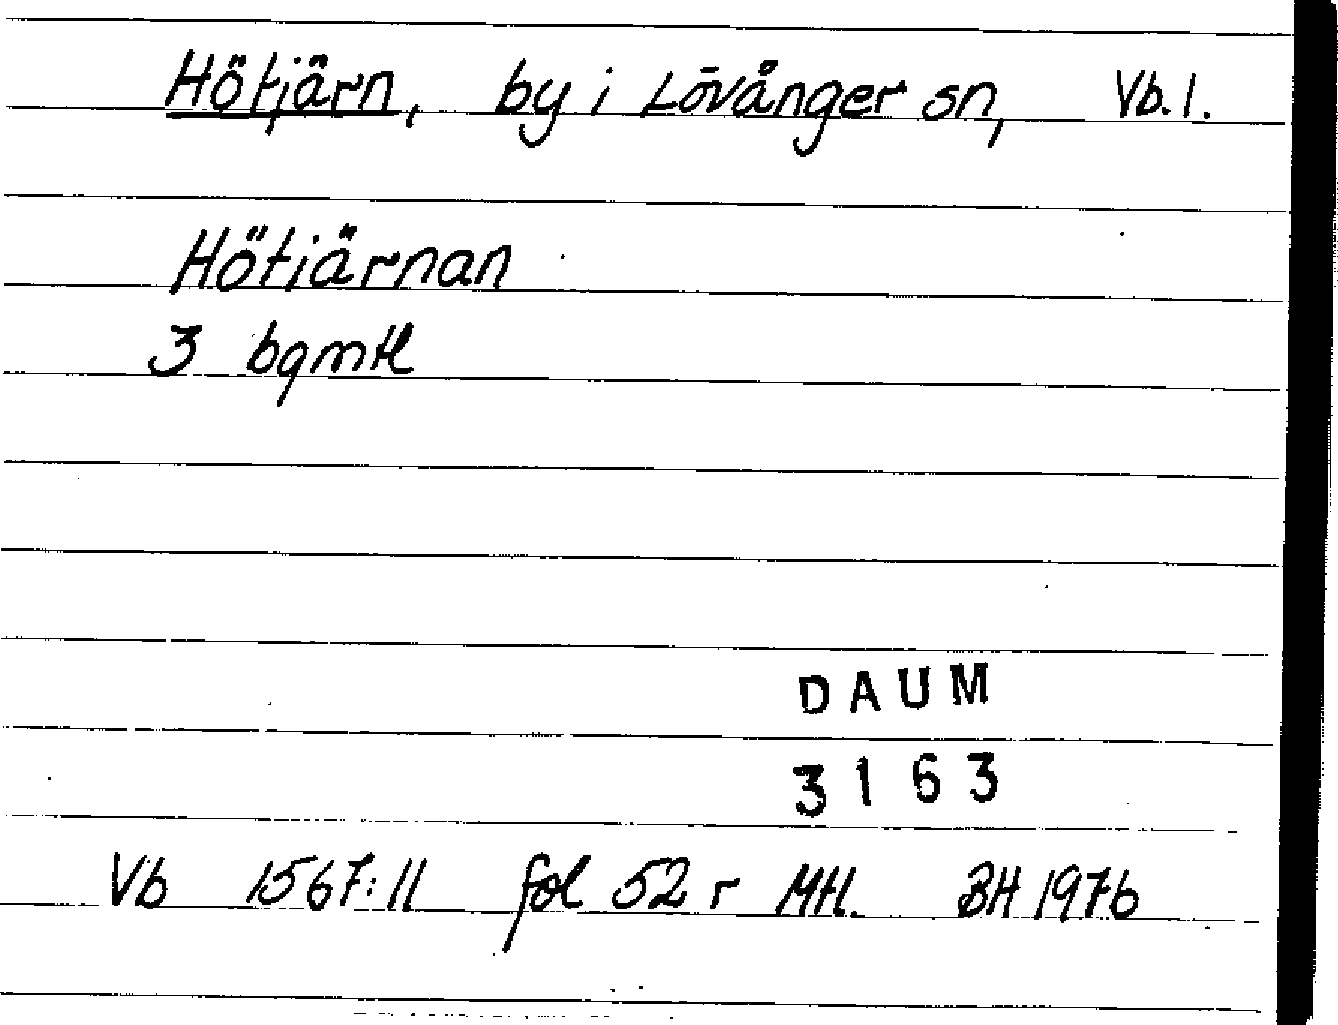 Hötjärn, by i Lövånger sn, Vb. l.
Hötiärnan
3 bgmtl
DAUM
3163
Vb 1567:11 fol 52 r MH. BH 1976